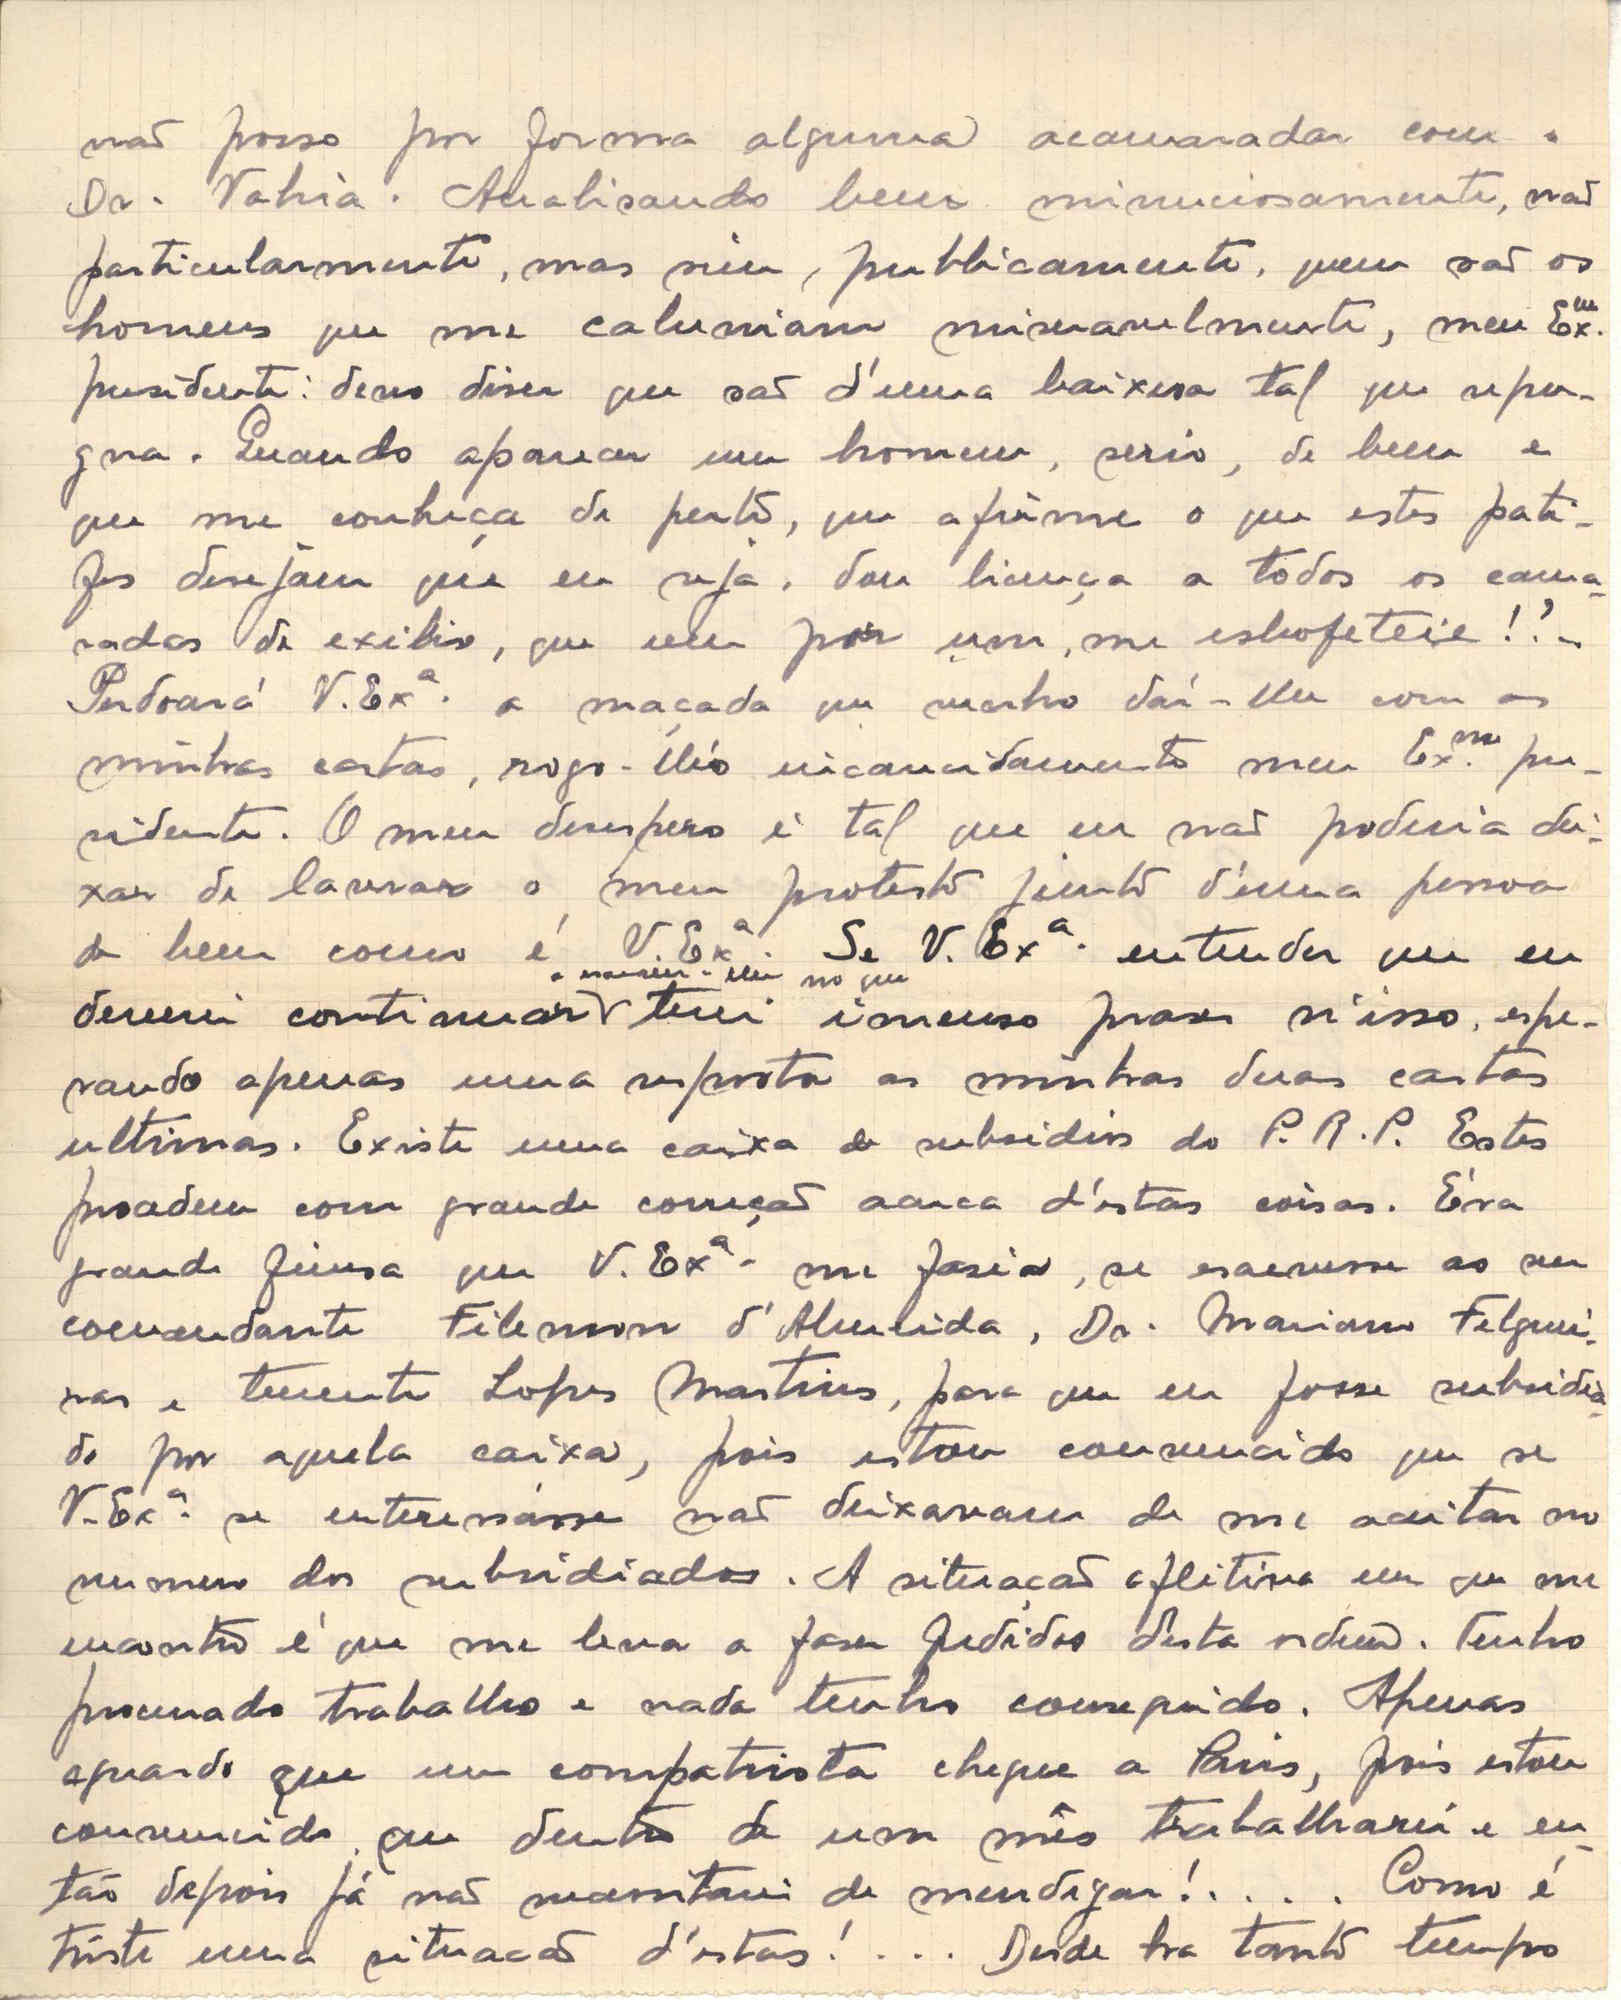 não posso por forma alguma acamaradar com o
Dr. Vahia. Analisando bem minuciosamente, não
particularmente, mas sim, publicamente, quem são os
homens que me caluniam miseravelmente, meu Ex.mo
presidente: devo diser que são d'uma baixesa tal que repu-
gna. Quando aparecer um homem, serio, de bem e
que me conheça de pertô, que afirme o que estes pati-
fes desejam que eu seja, dou licença a todos os cama-
radas de exilio, que um por um, me esbofeteie!?..
Perdoará V. Exª. a maçada que venho dár-lhe com as
minhas cartas, rogo-lh'o encarecidamente meu Ex.mo pre-
sidente. O meu desespero é tal que eu não poderia dei-
xar de lavrar o meu protestô juntô d'uma pessoa
de bem como é V. Exª. Se V. Exª. entender que eu
deverei continuar a escrever-lhe no que terei imenso praser n'isso, espe-
rando apenas uma resposta as minhas duas cartas
ultimas. Existe uma caixa de subsidios do P. R. P. Estes
procedem com grande correção acerca d'estas coisas. Éra
grande finesa que V. Exª. me fasia, se escrevesse ao snr
comandante Filemon d'Almeida, Dr. Mariano Felguei-
ras e tenente Lopes Martins, para que eu fosse subsidia-
do por aquela caixa, pois estou convencido que se
V. Exª. se enteressásse não deixavam de me aceitar no
numero dos subsidiados. A situação aflitiva em que me
encontro é que me leva a faser pedidos desta ordem. Tenho
procurado trabalho e nada tenho conseguido. Apenas
aguardo que um compatriota chegue a Paris, pois estou
convencido que dentro de um mês trabalharei e en-
tão depois já não necessitarei de mendigar!.... Como é
triste uma situacão d'estas!.... Desde ha tantô tempo